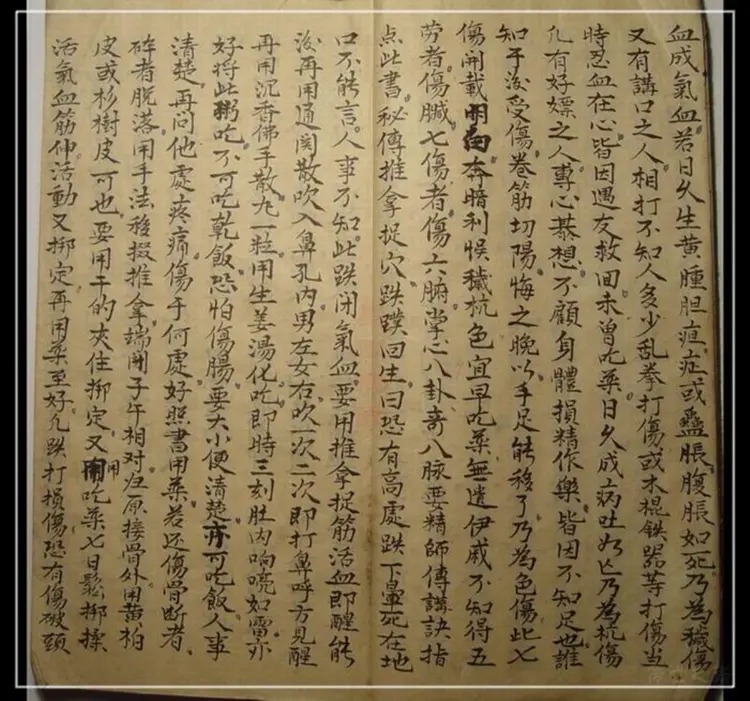 血成氣血若日久生黄腫胆疸症或蠱脹腹脹如死乃為穢傷
又有講口之人相打不知人多少乱拳打傷或木棍鉄器等打傷当
時忍血在心皆因遇友救回未曾吃薬日久成病吐幼亾乃為杭傷
凢有好嫖之人專心慕想不顧身體損精作樂皆因不知足也誰
知于後受傷卷筋切陽悔之晚以手足能移了乃為色傷此七
傷開載明白奔暗利候穢杭色宜早吃薬無遺伊戚不知得五
劳者傷臓七傷者傷六腑掌心八卦竒八脉要精師傅講訣指
点此書秘傳推拿捉穴跌蹼回生曰恐有高處跌下鼻死在地
口不能言人事不知此跌闭氣血要用推拿捉筋活血即醒能
後再用通関散吹入鼻孔内男左女右吹一次二次即打鼻呼方見醒
再用沉香佛手散九一粒用生姜湯化吃即時三刻肚内响喨如雷亦
好将此粥吃不可吃乾飯恐怕傷腸要大小便清楚亦可吃飯人事
清楚再問他處疼痛傷于何處好照書用薬若还傷骨断者
碎者脱落用手法移掇推拿端開子午相对归原接骨外用黄柏
皮或杉樹皮可也要用干的夾住挷定又用吃薬七日鬆挷揉
活氣血筋伸活動又挷定再用薬至好凢跌打損傷恐有傷破頭